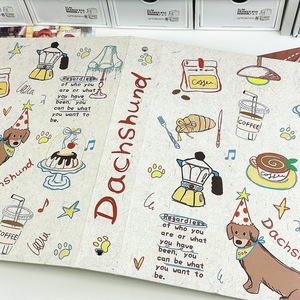 Regardless
of who you
are or what
you have
been, you
can be what
you want to
be.
COFFEE
Dachshund
Coffee
COFFEE
Regardless
of who you
are or what
you have
been, you
can be what
you want to
be.